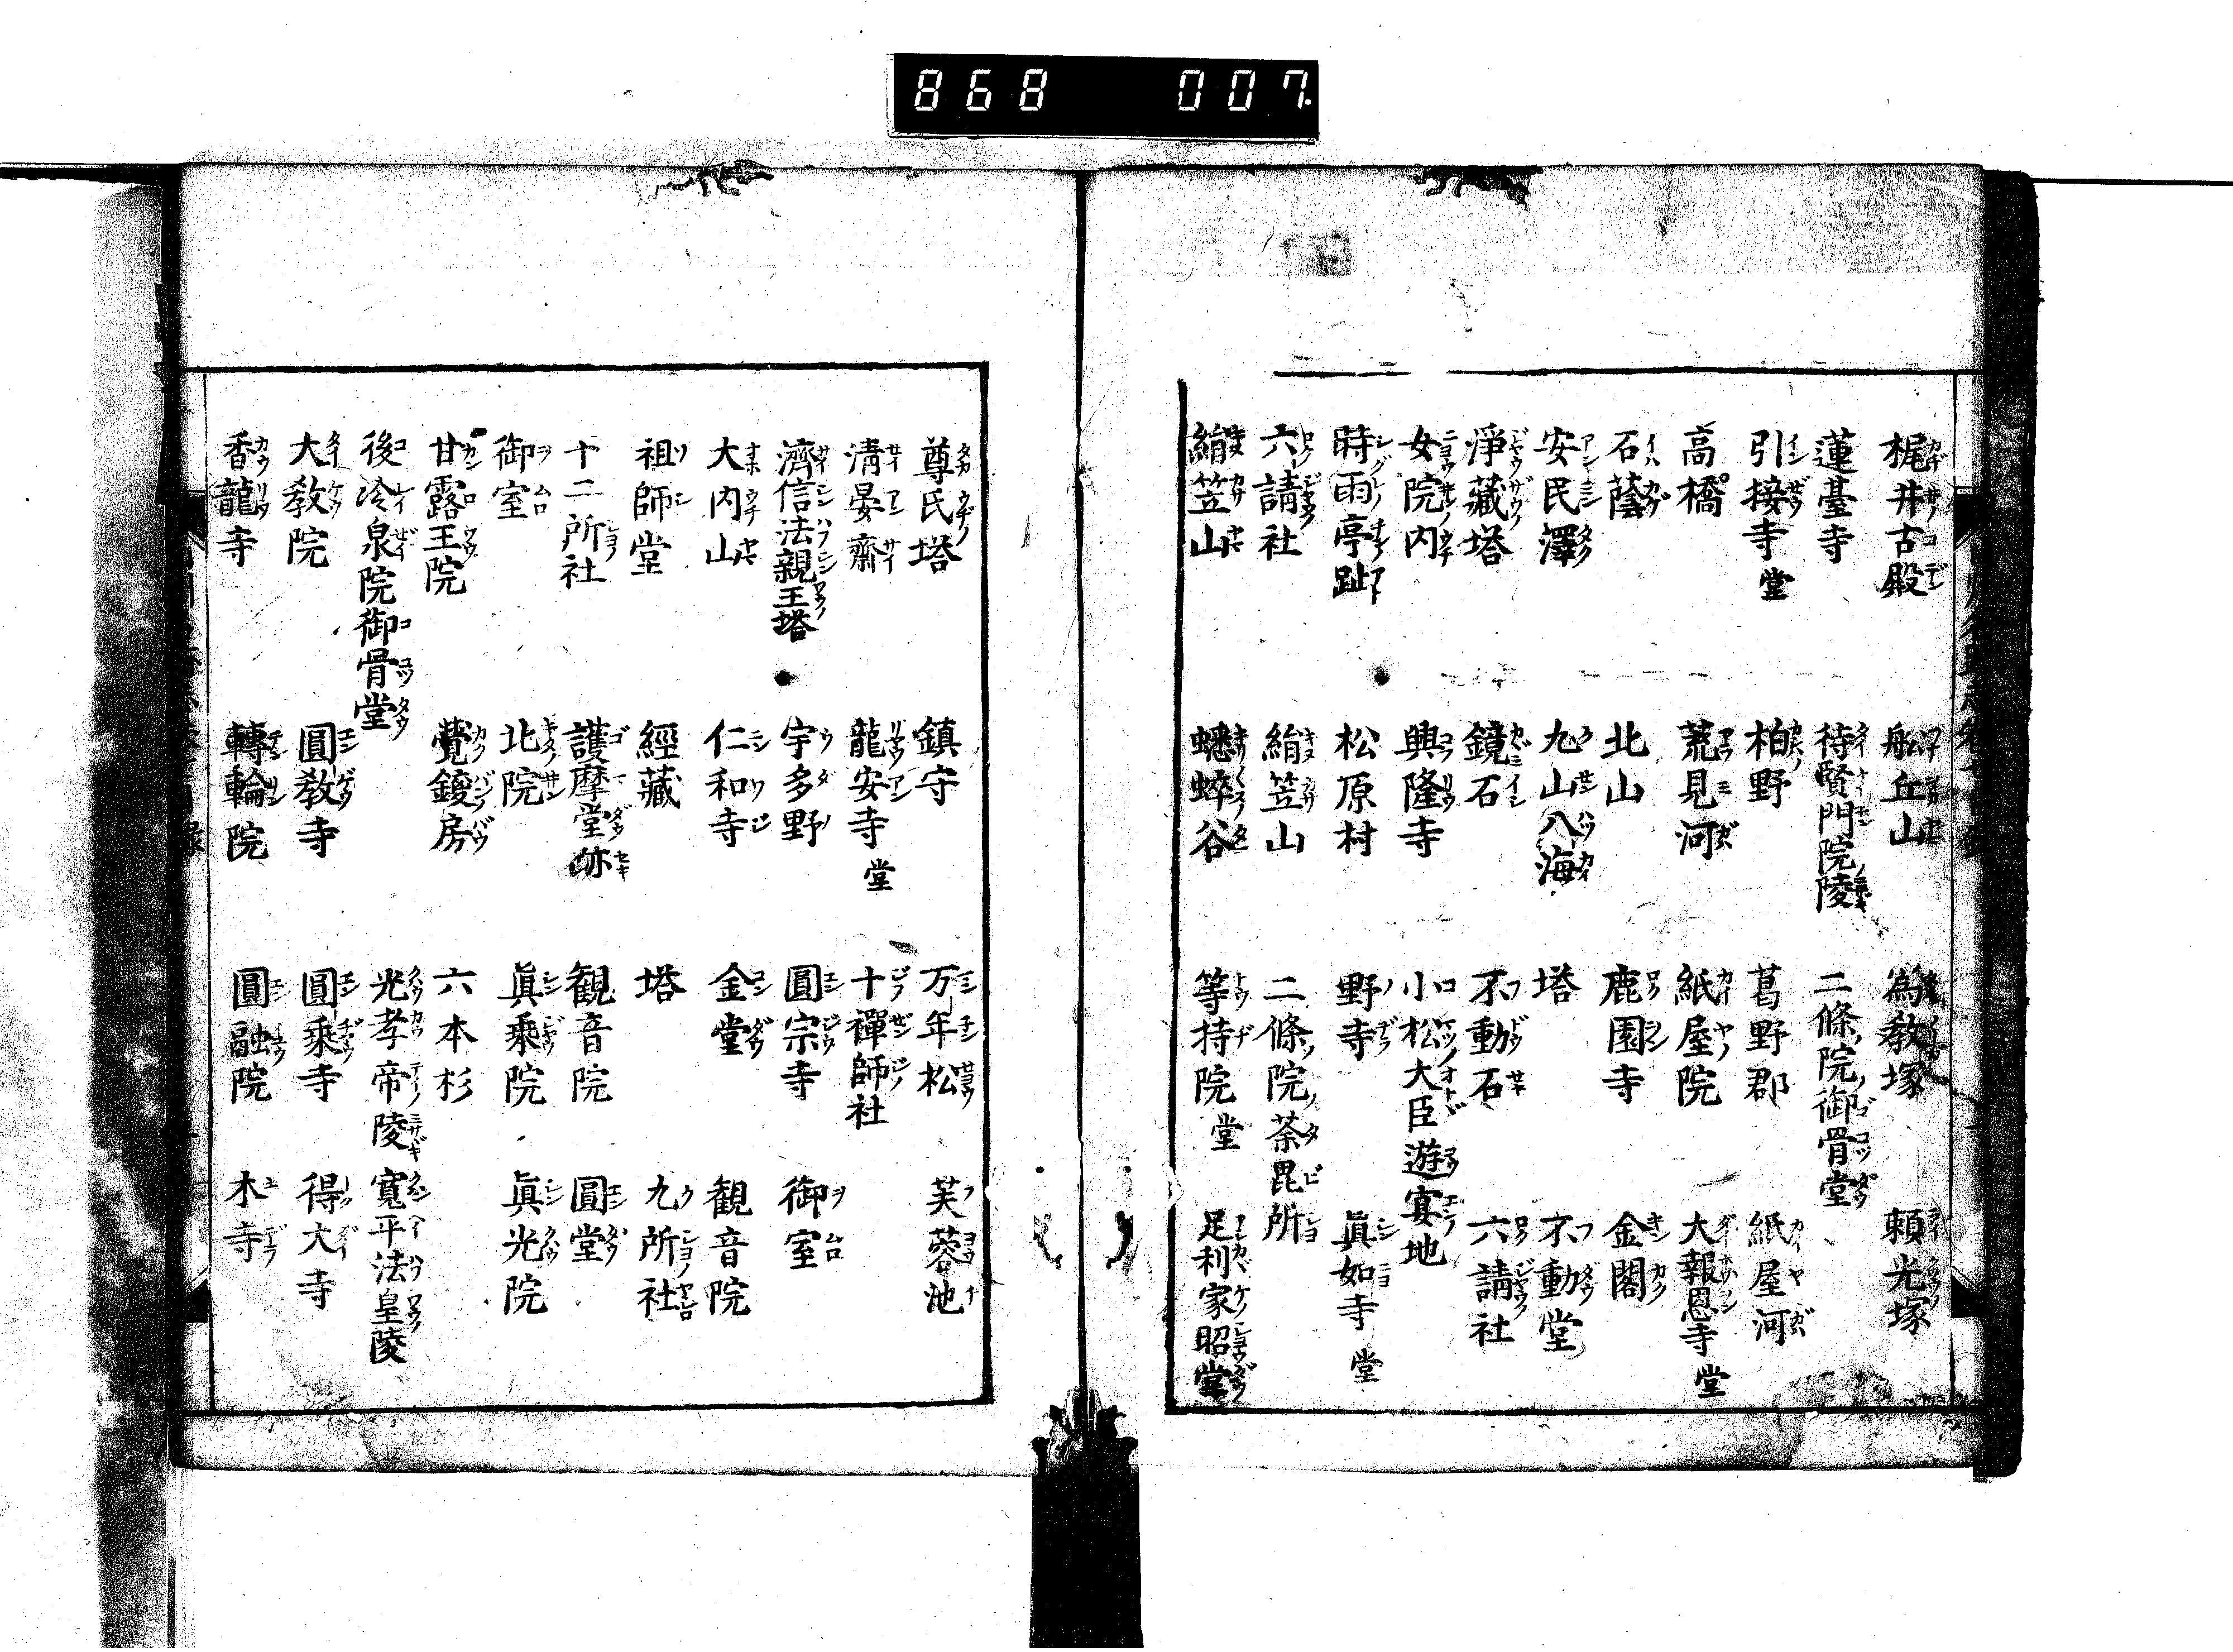 868 007
梶井古殿 船丘山 為教塚 頼光塚
蓮臺寺 待賢門院陵 二條院御骨堂
引接寺堂 柏野 葛野郡 紙屋河
高橋 荒見河 紙屋院 大報恩寺堂
石蔭 北山 鹿園寺 金閣
安民澤 九山八海 塔 不動堂
淨藏塔 鏡石 不動石 六請社
女院内 興隆寺 小松大臣遊宴地
時雨亭趾 松原村 野寺 眞如寺堂
六請社 絹笠山 二條院荼毘所
絹笠山 蟋蟀谷 等持院堂 足利家昭堂
尊氏塔 鎮守 万年松 芙蓉池
清晏齋 龍安寺堂 十禪師社
濟信法親王塔 宇多野 圓宗寺 御室
大内山 仁和寺 金堂 観音院
祖師堂 經藏 塔 九所社
十二所社 護摩堂跡 観音院 圓堂
御室 北院 眞乘院 眞光院
甘露王院 覺鑁房 六本杉
後冷泉院御骨堂 光孝帝陵 寛平法皇陵
大教院 圓教寺 圓乘寺 得大寺
香龍寺 轉輪院 圓融院 木寺